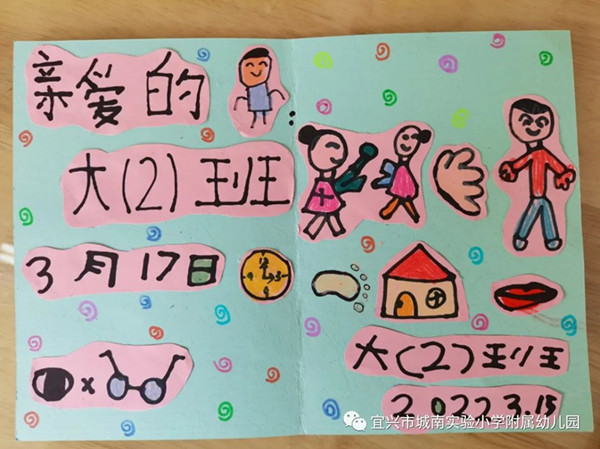 亲爱的:
大(2)班
3月17日
x
大(2)班
2022.3.15
宜兴市城南实验小学附属幼儿园